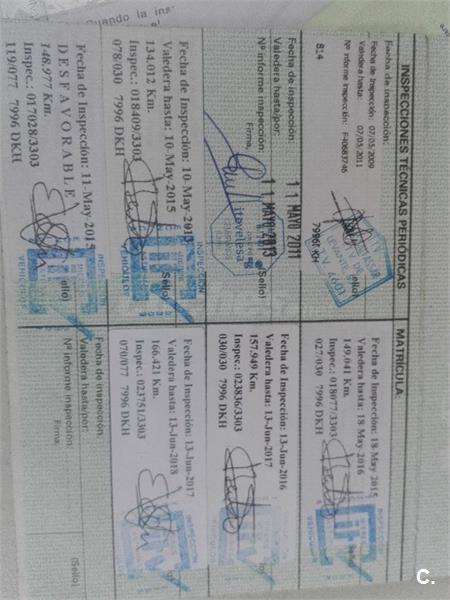 Cuando la ins
INSPECCIONES TÉCNICAS PERIODICAS
Fecha de inspección:
Fecha de Inspección: 07/05/2009
Valedera hasta: 07/05/2011
Nº informe inspección: F40683746
8:4
7996DKH
(Sello)
Fecha de inspección:
Valedera hasta/por:
Nº informe inspección:
Firma,
11 MAYO 2011
11 MAYO 2013
(Sello)
itevelesa
Fecha de Inspección: 10-May-2013
Valedera hasta: 10-May-2015
134.012 Km.
Inspec.: 018409/3303
078/030 7996 DKH
(Sello)
INSPECCION
VEHICULOS
Fecha de Inspección: 11-May-2015
DESFAVORABLE
148.977 Km.
Inspec.: 017028/3303
119/077 7996 DKH
(Sello)
INSPECCION
VEHICULOS
MATRÍCULA:
Fecha de Inspección: 18-May-2015
Valedera hasta: 18-May-2016
149.041 Km.
Inspec.: 018077/3303
027/030 7996 DKH
(Sello)
INSPECCION
VEHICULOS
Fecha de Inspección: 13-Jun-2016
Valedera hasta: 13-Jun-2017
157.949 Km.
Inspec.: 023836/3303
030/030 7996 DKH
Fecha de Inspección: 13-Jun-2017
Valedera hasta: 13-Jun-2018
166.421 Km.
Inspec.: 023781/3303
070/077 7996 DKH
Fecha de inspección:
Valedera hasta/por:
Nº informe inspección:
Firma,
(Sello)
C.